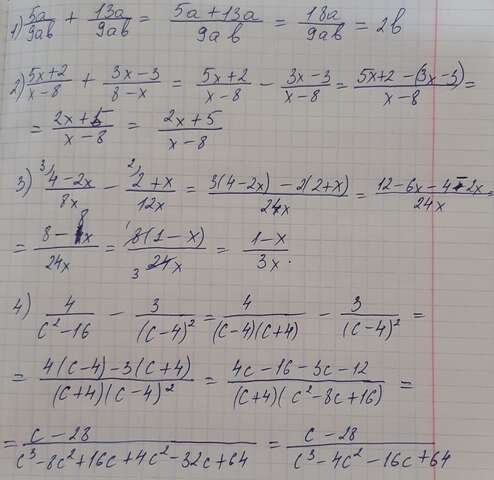 1) 5a/9ab + 13a/9ab = (5a+13a)/9ab = 18a/9ab = 2b
2) (5x+2)/(x-8) + (3x-3)/(8-x) = (5x+2)/(x-8) - (3x-3)/(x-8) = (5x+2-(3x-3))/(x-8) =
= (2x+5)/(x-8) = (2x+5)/(x-8)
3) ³⁾(4-2x)/8x - ²⁾(2+x)/12x = (3(4-2x)-2(2+x))/24x = (12-6x-4-2x)/24x =
= (8-8x)/24x = 8(1-x)/24x = (1-x)/3x.
4) 4/(c²-16) - 3/(c-4)² = 4/((c-4)(c+4)) - 3/(c-4)² =
= (4(c-4)-3(c+4))/((c+4)(c-4)²) = (4c-16-3c-12)/((c+4)(c²-8c+16)) =
= (c-28)/(c³-8c²+16c+4c²-32c+64) = (c-28)/(c³-4c²-16c+64)